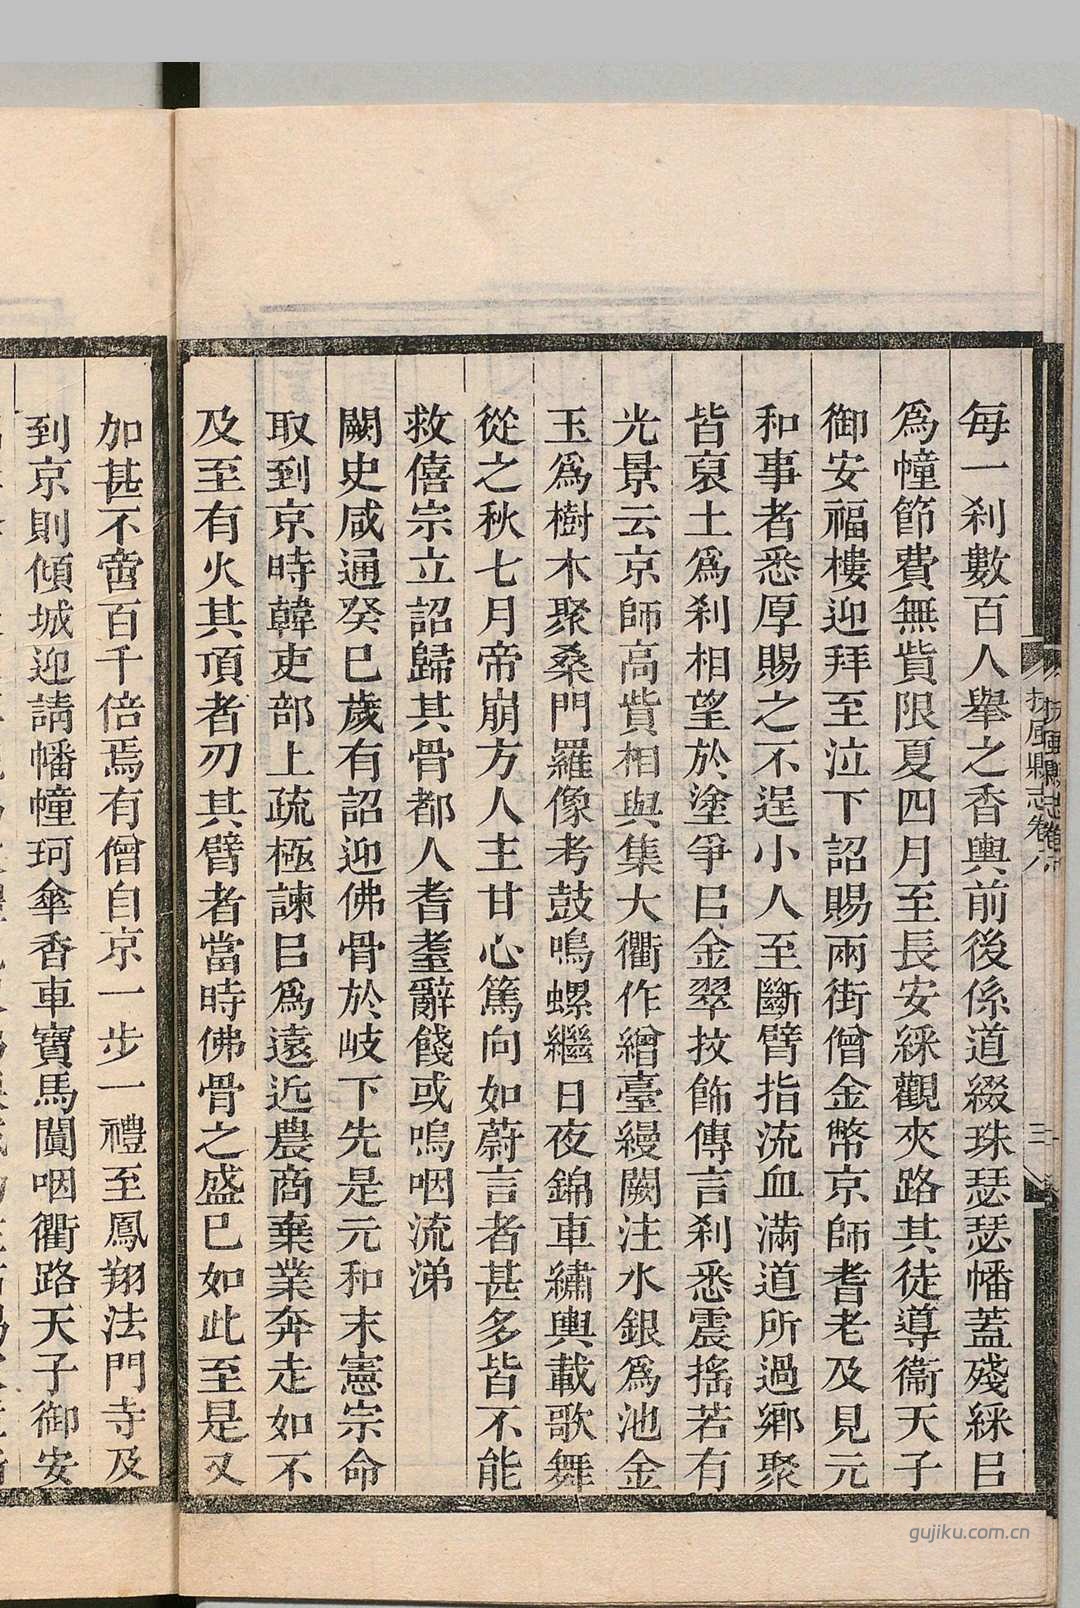 每一刹數百人舉之香輿前後係道綴珠瑟瑟幡蓋殘綵㠯
爲幢節費無貲限夏四月至長安綵觀夾路其徒導衞天子
御安福樓迎拜至泣下詔賜兩街僧金幣京師耆老及見元
和事者悉厚賜之不逞小人至斷臂指流血滿道所過鄉聚
皆裒土爲刹相望於塗爭㠯金翠抆飾傳言刹悉震搖若有
光景云京師高貲相與集大衢作繒臺縵闕注水銀爲池金
玉爲樹木聚桑門羅像考鼓鳴螺繼日夜錦車繡輿載歌舞
從之秋七月帝崩方人主甘心篤向如蔚言者甚多皆不能
救僖宗立詔歸其骨都人耆耋辭餞或嗚咽流涕
闕史咸通癸巳歲有詔迎佛骨於岐下先是元和末憲宗命
取到京時韓吏部上疏極諫㠯爲遠近農商棄業奔走如不
及至有火其頂者刃其臂者當時佛骨之盛已如此至是又
加甚不啻百千倍焉有僧自京一步一禮至鳳翔法門寺及
到京則傾城迎請幡幢珂傘香車寶馬闐咽衢路天子御安
扶風縣志卷八
三
gujiku.com.cn